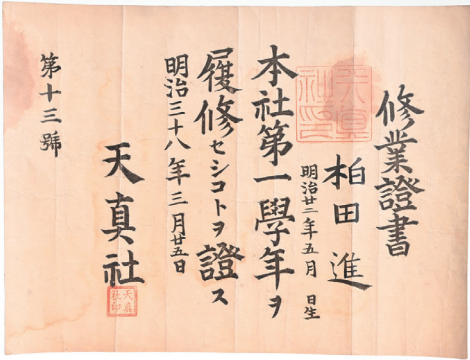 修業證書
柏田進
明治廿二年五月 日生
本社第一學年ヲ
履修セシコトヲ證ス
明治三十八年三月廿五日
天真社
第十三號
天眞社印
天眞社印